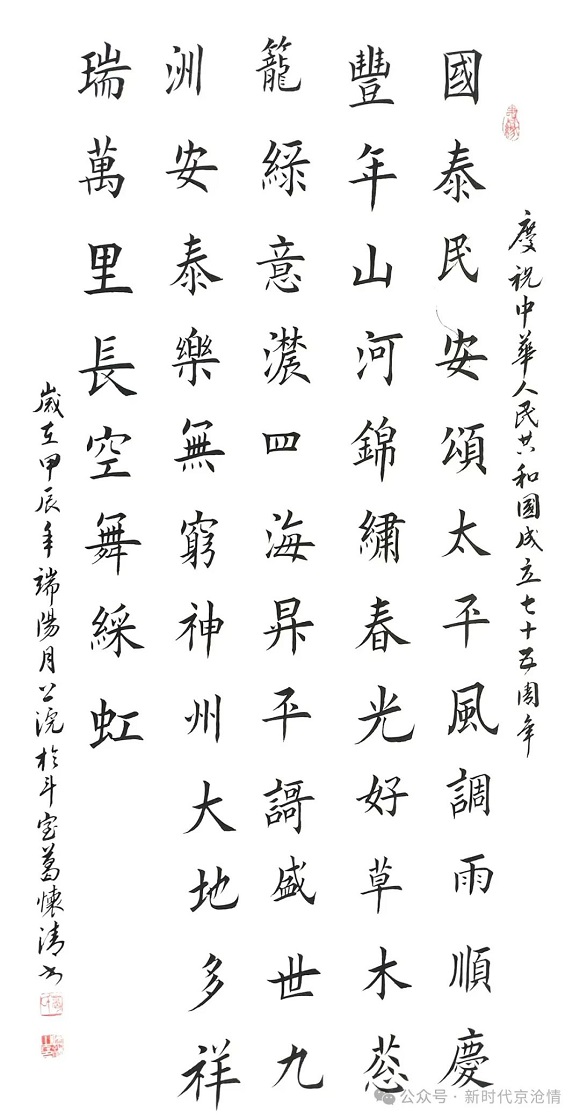 慶祝中華人民共和國成立七十五周年
國泰民安頌太平風調雨順慶
豐年山河錦繡春光好草木葱
籠綠意濃四海昇平謌盛世九
洲安泰樂無窮神州大地多祥
瑞萬里長空舞綵虹
歲在甲辰年端陽月上浣於斗室葛懷清书
公众号 · 新时代京沧情